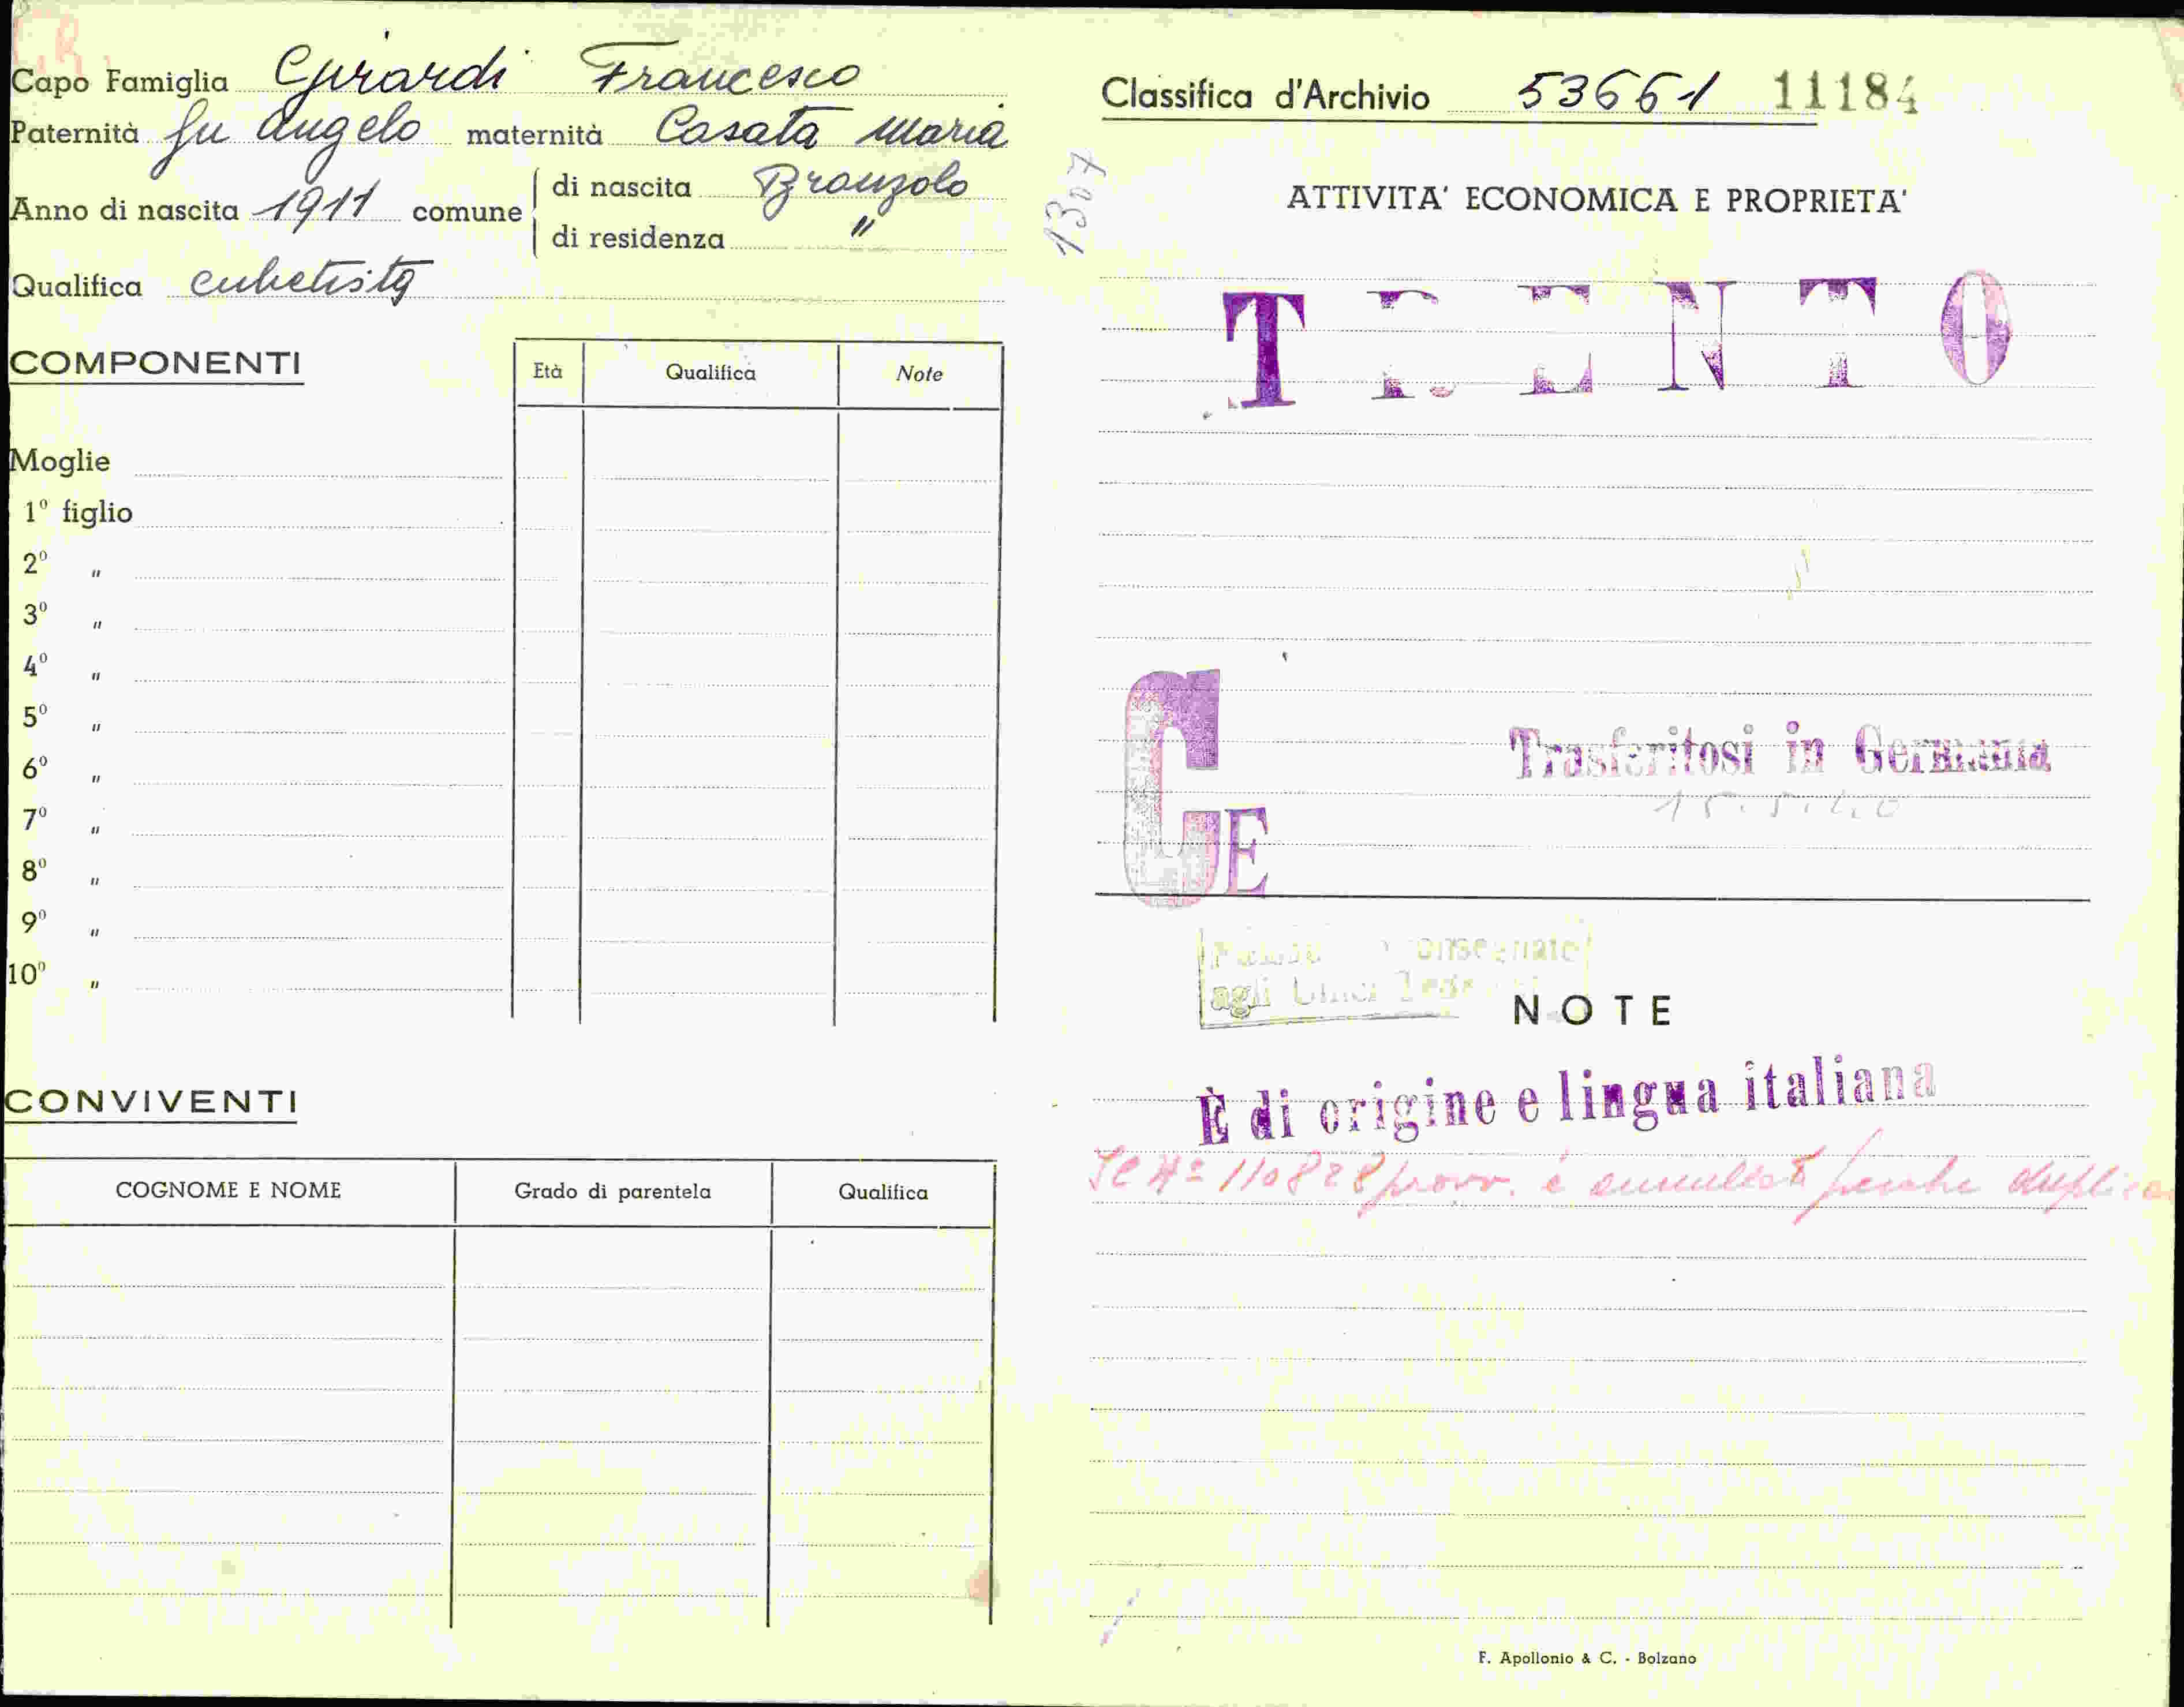 Capo Famiglia Girardi Francesco
Paternità fu Angelo maternità Casata Maria
Anno di nascita 1911 comune
di nascita Bronzolo
di residenza "
Qualifica cubettista
COMPONENTI
Età Qualifica Note
Moglie
1º figlio
2º "
3º "
4º "
5º "
6º "
7º "
8º "
9º "
10º "
CONVIVENTI
COGNOME E NOME Grado di parentela Qualifica
Classifica d'Archivio 53661 11184
1307
ATTIVITA' ECONOMICA E PROPRIETA'
TRENTO
GE
Trasferitosi in Germania
consegnate
agli
NOTE
È di origine e lingua italiana
Il Nº 110828 provv. è annullato perchè
F. Apollonio & C. - Bolzano